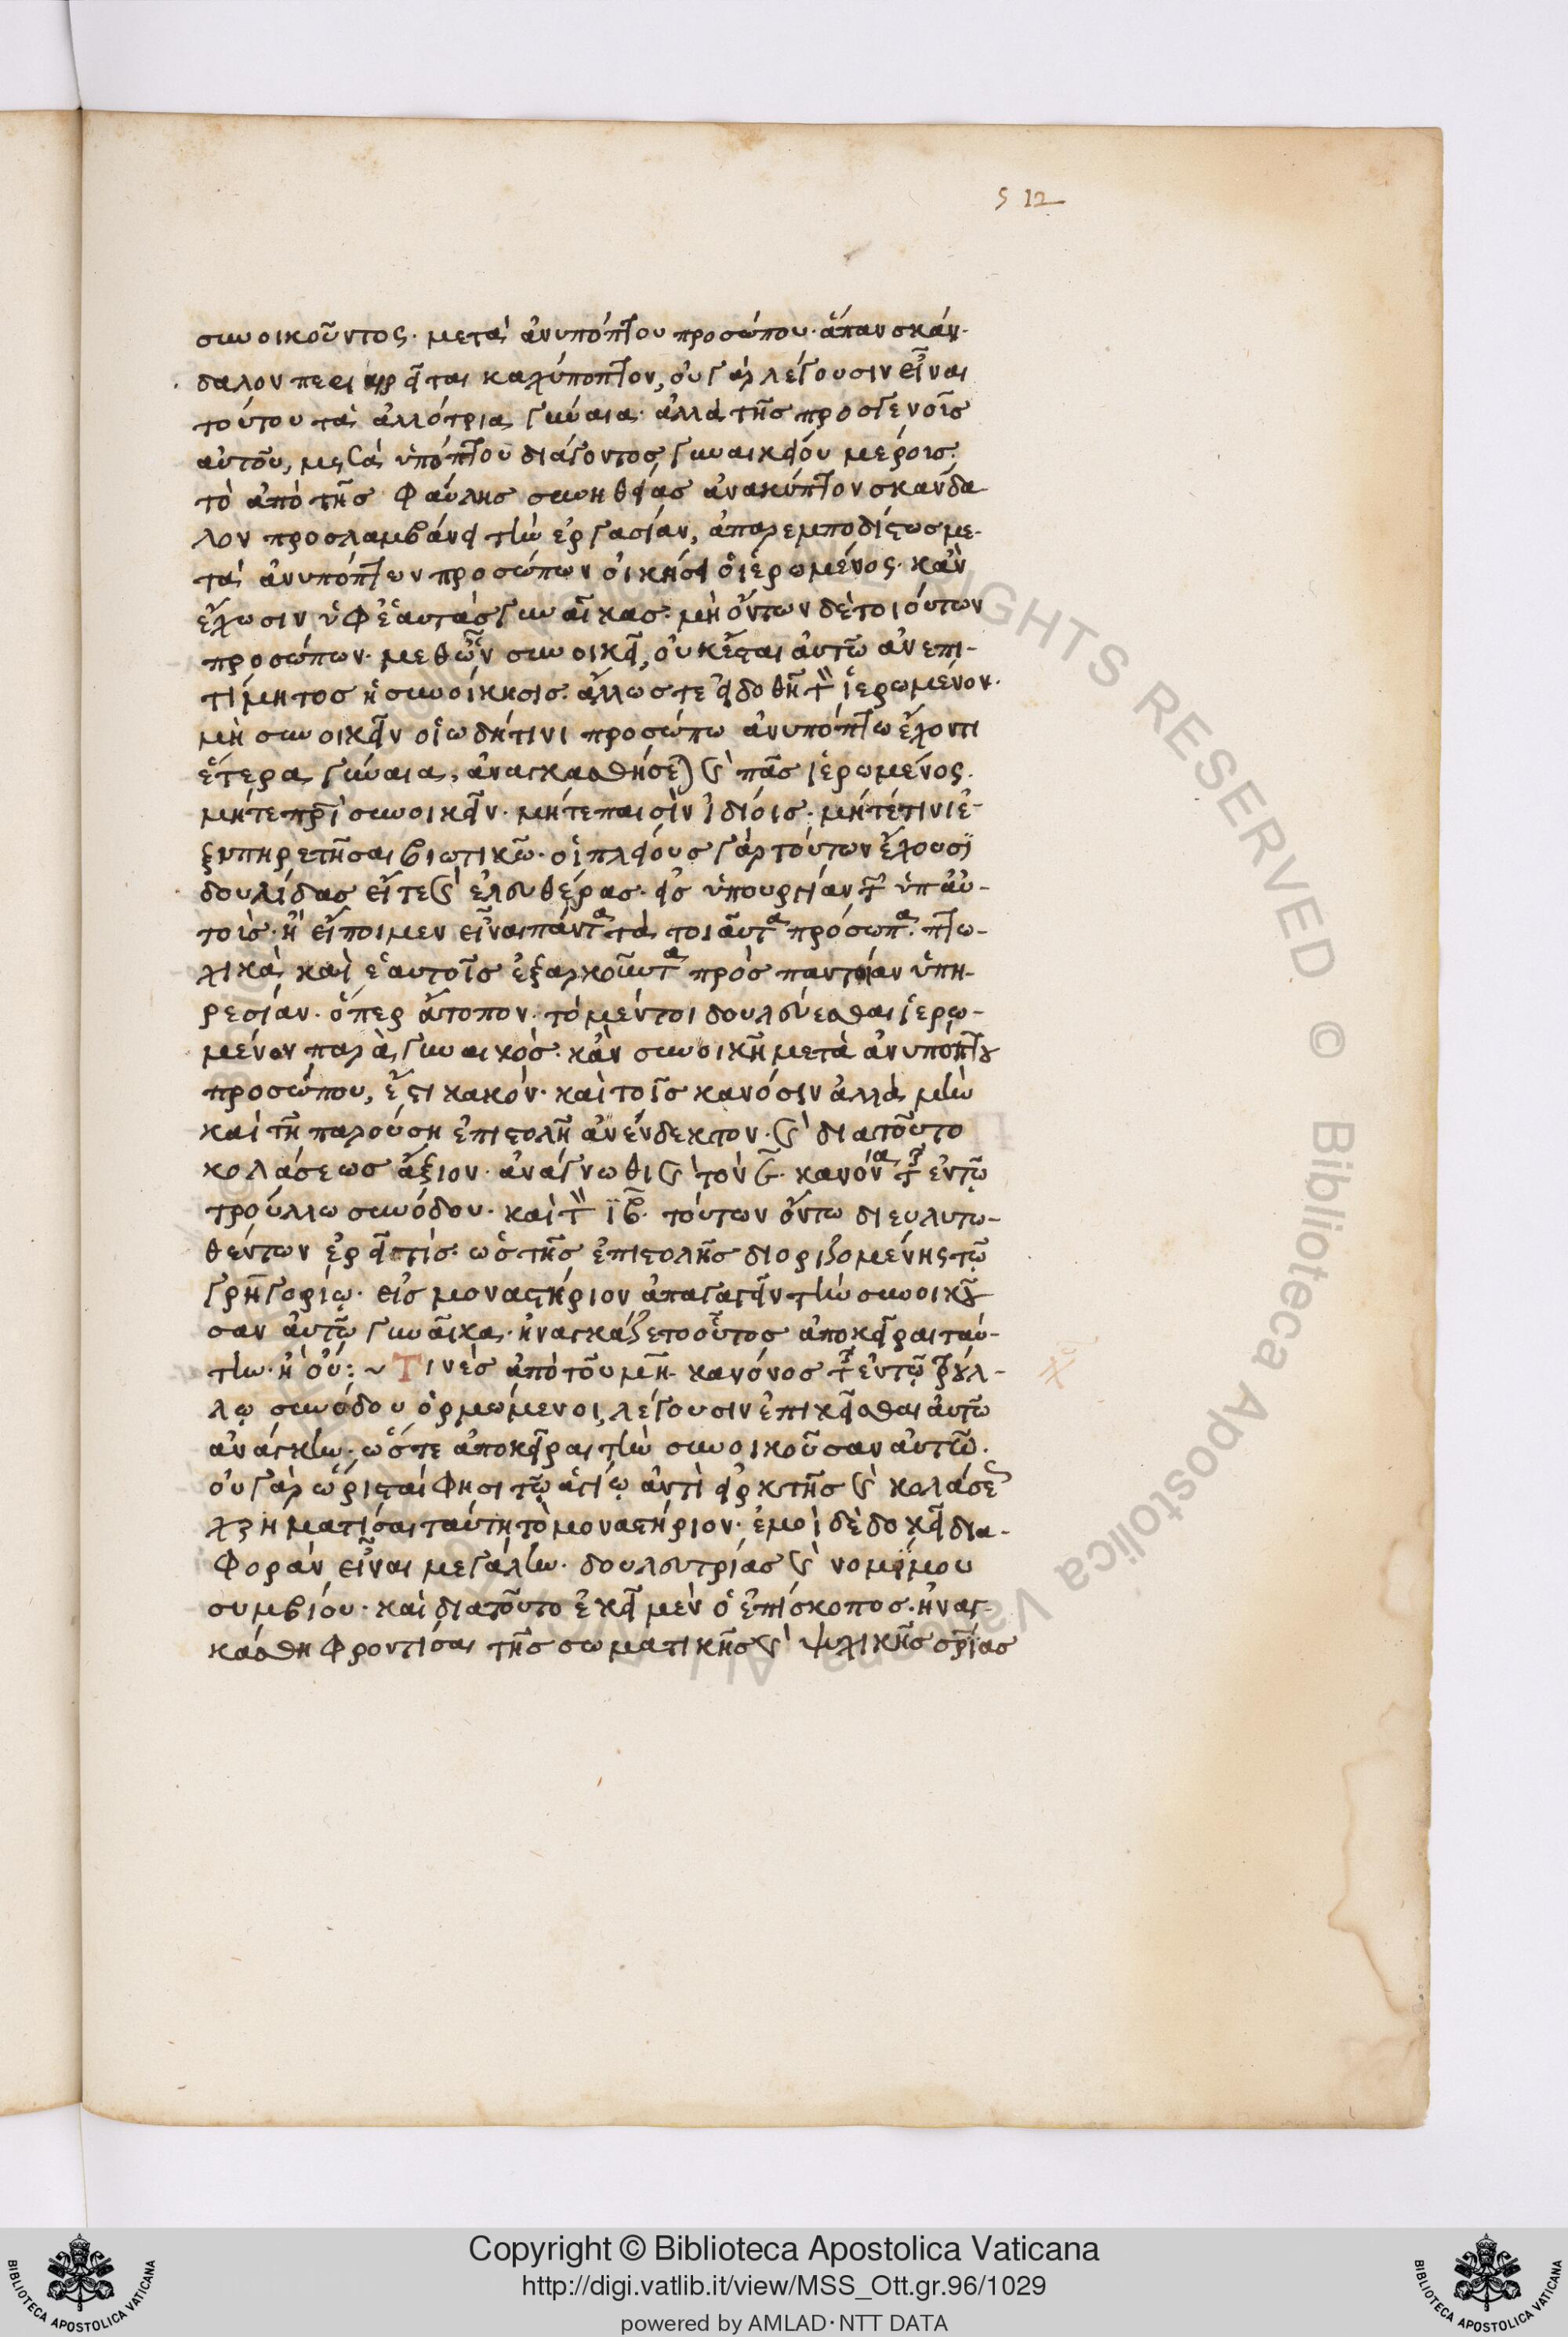 512
συνοικοῦντος· μετὰ ἀνυπόπτου προσώπου· ἅπαν σκάν-
δαλον περιαιρεῖται καχύποπτον, οὐ γὰρ λέγουσιν εἶναι
τούτου τὰ ἀλλότρια γύναια· ἀλλὰ τῆς προσγενοῖς
αὐτοῦ, μετὰ ὑπόπτου διάγοντος γυναικείου μέρους·
τὸ ἀπὸ τῆς φαύλης συνηθείας ἀνακύπτον σκάνδα
λον προσλαμβάνει τὴν ἐργασίαν, ἀπαρεμποδίστως με-
τὰ ἀνυπόπτων προσώπων οἰκήσει ὁ ἱερωμένος· κἂν
ἔχωσιν ὑφ' ἑαυτὰς γυναῖκας· μὴ ὄντων δὲ τοιούτων
προσώπων· μεθ' ὧν συνοικεῖ, οὐκ ἔσται αὐτῷ ἀνεπι-
τίμητος ἡ συνοίκησις· ἄλλως τε εἰ δοθῇ τὸν ἱερωμένον·
μὴ συνοικεῖν οἱωδήτινι προσώπω ἀνυπόπτω ἔχοντι
ἕτερα γύναια, ἀναγκασθήσεται καὶ πᾶς ἱερωμένος·
μήτε πατρὶ συνοικεῖν· μήτε παισὶν ἰδίοις· μήτέ τινι ἐ-
ξυπηρετῆσαι βιωτικῶ· οἱ πλείους γὰρ τούτων ἔχουσϊ
δουλίδας εἴτε καὶ ἐλευθέρας· εἰς ὑπουργίαν τὴν ὑπ' αὐ-
τοῖς· ἢ εἴποιμεν εἶναι πάντα τὰ τοιαῦτα πρόσωπα· πτω-
χικὰ καὶ ἑαυτοῖς ἐξαρκοῦντα πρὸς παντοίαν ὑπη-
ρεσίαν· ὅπερ ἄτοπον· τὸ μέντοι δουλεύεσθαι ἱερω-
μένον παρὰ γυναικὸς· κἂν συνοικῇ μετὰ ἀνυπόπτου
προσώπου, ἔστι κακόν· καὶ τοῖς κανόσιν ἀλλὰ μὴν
καὶ τῇ παρούση ἐπιστολῇ ἀνένδεκτον· καὶ διατοῦτο
κολάσεως ἄξιον· ἀνάγνωθι καὶ τὸν ϛ̄· κανόνα τῆς ἐν τῷ
τρούλλω συνόδου· καὶ τὸν ϊβ̄· τούτων οὕτω διευλυτω-
θέντων ἐρεῖ τίς· ὡς τῆς ἐπιστολῆς διοριζομένης τῷ
γρηγορίῳ· εἰς μοναστήριον ἀπαγαγεῖν τὴν συνοικοῦ
σαν αὐτῷ γυναῖκα· ἠναγκάζετο οὗτος ἀποκεῖραι ταύ-
την· ἢ οὔ: ~ Τινὲς ἀπὸ τοῦ μη̄· κανόνος τῆς ἐν τῷ τρούλ-
λῳ συνόδου ὁρμώμενοι, λέγουσιν ἐπικεῖσθαι αὐτῶ
ἀνάγκην· ὥστε ἀποκεῖραι τὴν συνοικοῦσαν αὐτῶ·
οὐ γὰρ ὥρισται φησι τῷ ἁγίῳ ἀντὶ εἱρκτῆς καὶ κολάσεως
χρηματίσαι ταύτη τὸ μοναστήριον· ἐμοὶ δὲ δοκεῖ δια-
φορὰν εἶναι μεγάλην· δουλευτρίας καὶ νομϊμου
συμβίου· καὶ διατοῦτο ἐκεῖ μὲν ὁ ἐπίσκοπος· ἠναγ-
κάσθη φροντίσαι τῆς σωματικῆς καὶ ψυχικῆς σωτηρίας
© Biblioteca Apostolica Vaticana ALL RIGHTS RESERVED
BIBLIOTECA APOSTOLICA VATICANA
Copyright © Biblioteca Apostolica Vaticana
http://digi.vatlib.it/view/MSS_Ott.gr.96/1029
powered by AMLAD·NTT DATA
BIBLIOTECA APOSTOLICA VATICANA